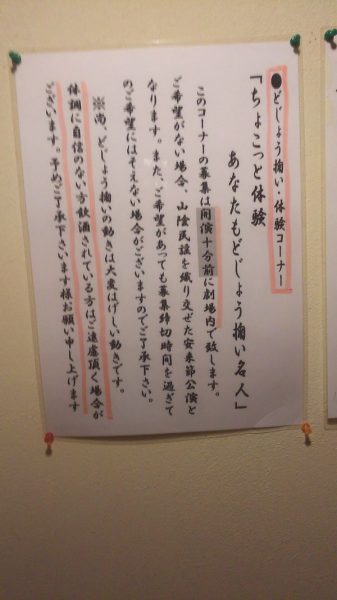 ●どじょう掬い・体験コーナー
「ちょこっと体験
あなたもどじょう掬い名人」
このコーナーの募集は開演十分前に劇場内で致します。
ご希望がない場合、山陰民謡を織り交ぜた安来節公演と
なります。また、ご希望があっても募集締切時間を過ぎて
のご希望にはそえない場合がございますのでご了承下さい。
※尚、どじょう掬いの動きは大変はげしい動きです。
体調に自信のない方飲酒されている方はご遠慮頂く場合が
ございます。予めご了承下さいます様お願い申し上げます